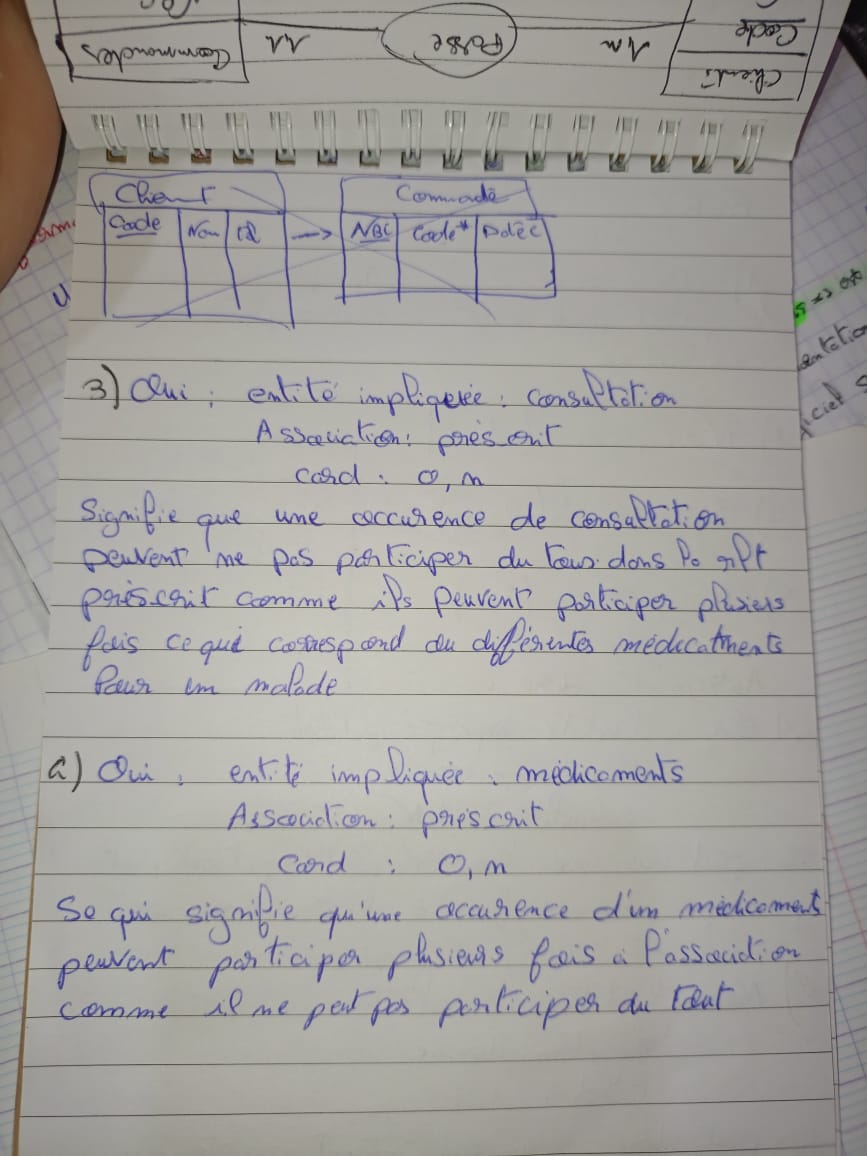 Commandes 1,1 Passe 1,n Client
Code
Client Commade
Code Nom NBC Code* Ddec
3) Oui : entité impliquée : consultation
Association : préscrit
Card : 0, n
Signifie que une occurence de consultation
peuvent ne pas participer du tous dans la
préscrit comme ils peuvent participer plusiers
fois ce qui correspond au différentes médicatments
Pour un malade
a) Oui : entité impliquée : médicaments
Association : préscrit
Card : 0, n
Se qui signifie qu'une occurence d'un médicament
peuvent participer plusieurs fois à l'association
comme il ne peut pas participer du tout